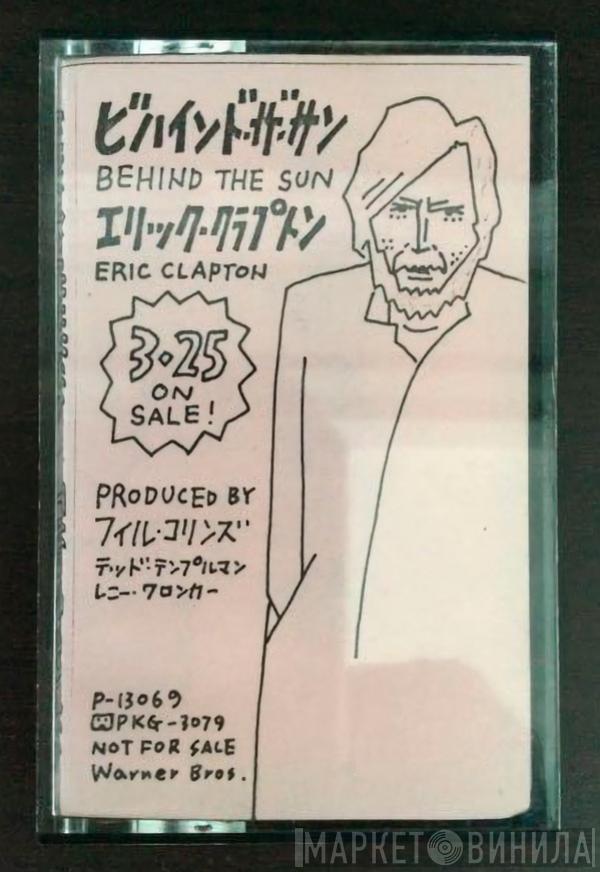 ビハインド・ザ・サン
BEHIND THE SUN
エリック・クラプトン
ERIC CLAPTON
3・25
ON
SALE!
PRODUCED BY
フィル・コリンズ
テッド・テンプルマン
レニー・ワロンカー
P-13069
PKG-3079
NOT FOR SALE
Warner Bros.
МАРКЕТ ВИНИЛА